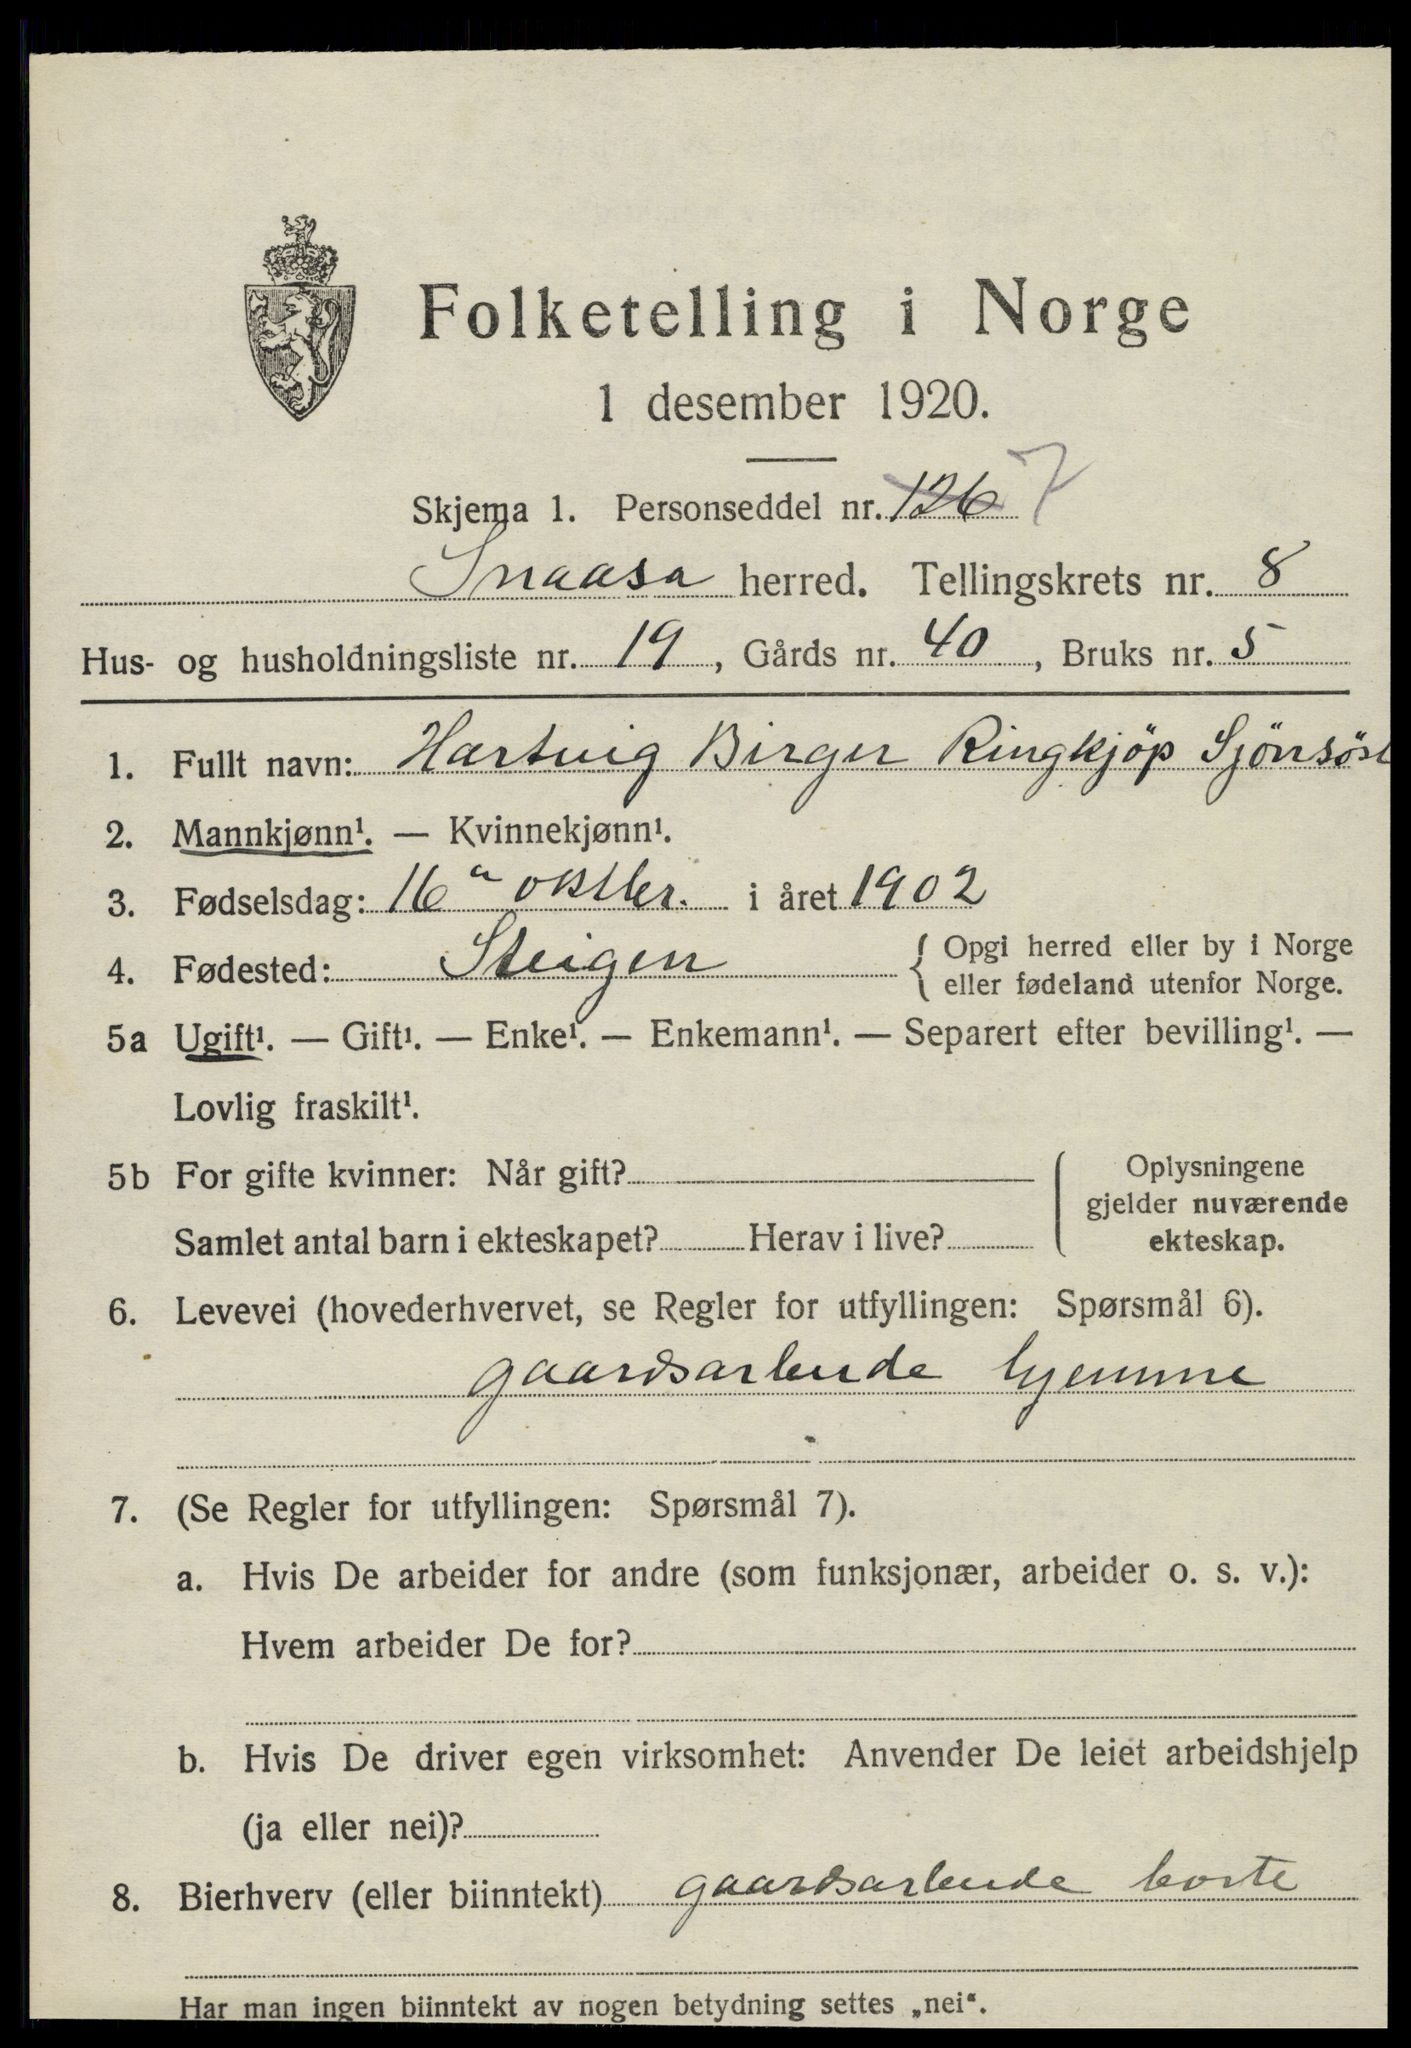 Folketelling i Norge
1 desember 1920.
Skjema 1. Personseddel nr. 126 7
Snaasa herred. Tellingskrets nr. 8
Hus- og husholdningsliste nr. 19, Gårds nr. 40, Bruks nr. 5
1. Fullt navn: Hartvig Birger Ringkjöp
2. Mannkjønn¹. — Kvinnekjønn¹.
3. Fødselsdag: 16 i året 1902
4. Fødested: Steigen { Opgi herred eller by i Norge
eller fødeland utenfor Norge.
5a Ugift¹. — Gift¹. — Enke¹. — Enkemann¹. — Separert efter bevilling¹. —
Lovlig fraskilt¹.
5b For gifte kvinner: Når gift?
Samlet antal barn i ekteskapet? Herav i live?
Oplysningene
gjelder nuværende
ekteskap.
6. Levevei (hovederhvervet, se Regler for utfyllingen: Spørsmål 6).
gaardsarbeide hjemme
7. (Se Regler for utfyllingen: Spørsmål 7).
a. Hvis De arbeider for andre (som funksjonær, arbeider o. s. v.):
Hvem arbeider De for?
b. Hvis De driver egen virksomhet: Anvender De leiet arbeidshjelp
(ja eller nei)?
8. Bierhverv (eller biinntekt) gaardsarbeide borte
Har man ingen biinntekt av nogen betydning settes „nei“.